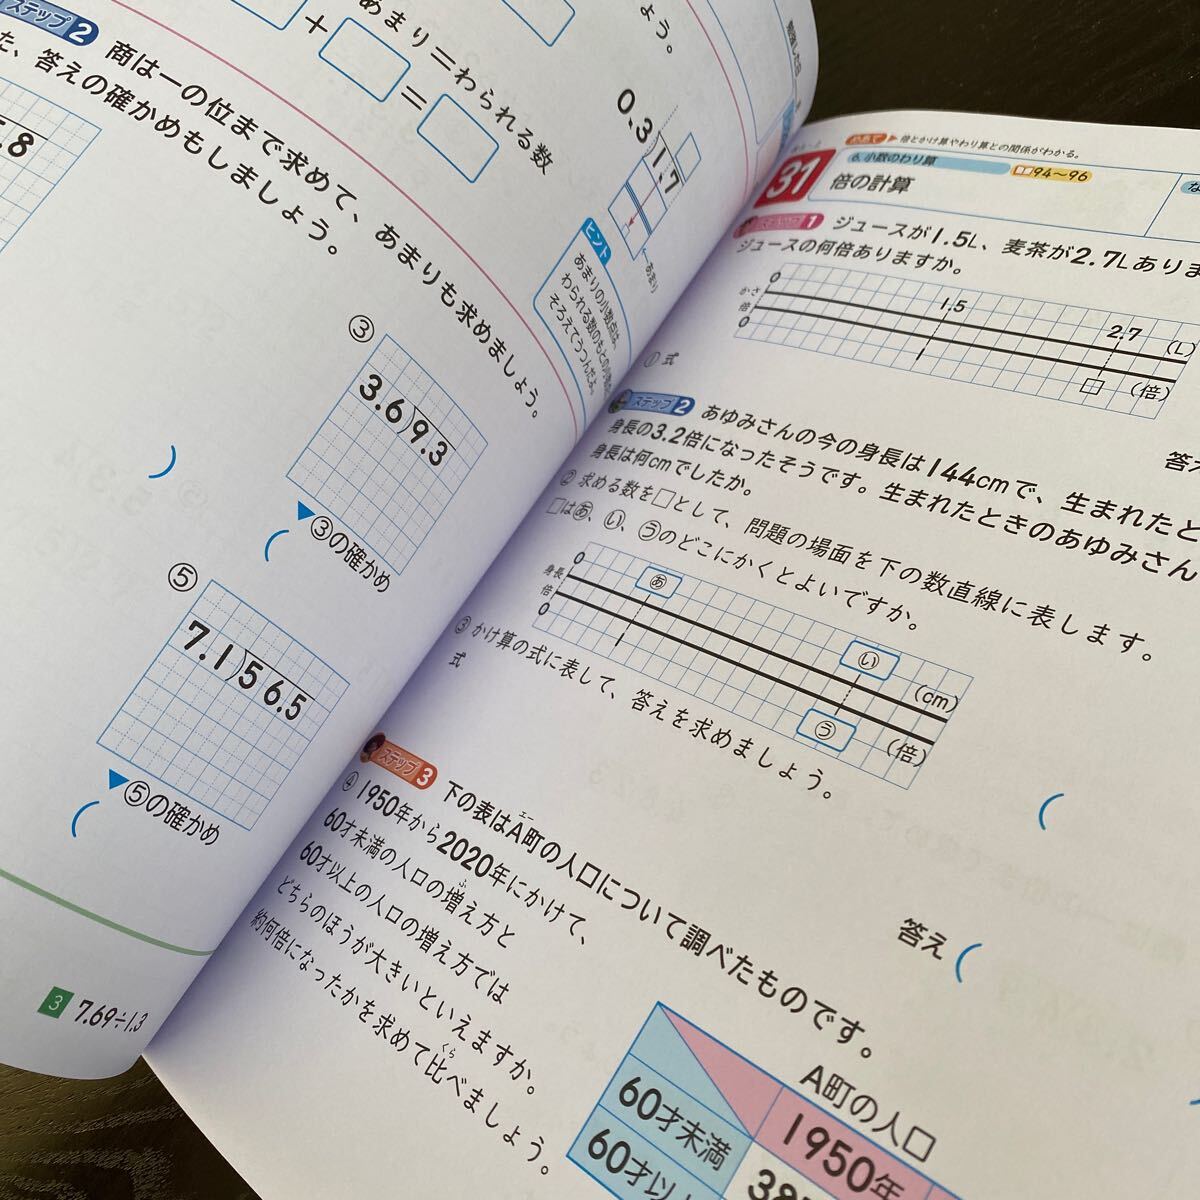 あまり＝わられる数
＋
＝
ょう。
ステップ2 商は一の位まで求めて、あまりも求めましょう。
た、答えの確かめもしましょう。
.8
0.3
1.7
あまり
ヒント
あまりの小数点は、
わられる数のもとの小数点に
そろえてうつんだよ。
③
3.6)9.3
▼③の確かめ
⑤
7.1)56.5
▼⑤の確かめ
3 7.69÷1.3
勉強した日
めあて ▶倍とかけ算やわり算との関係がわかる。
31
6. 小数のわり算
94〜96
倍の計算
な
ステップ1 ジュースが1.5L、麦茶が2.7Lありま
ジュースの何倍ありますか。
0 1.5 2.7 (L)
かさ
倍
0 1 □ (倍)
① 式
答え
ステップ2 あゆみさんの今の身長は144cmで、生まれたと
身長の3.2倍になったそうです。生まれたときのあゆみさん
身長は何cmでしたか。
② 求める数を□として、問題の場面を下の数直線に表します。
□はあ、い、うのどこにかくとよいですか。
0 あ い (cm)
身長
倍
0 1 う (倍)
③ かけ算の式に表して、答えを求めましょう。
式
答え
ステップ3 下の表はA町の人口について調べたものです。
エー
④ 1950年から2020年にかけて、
60才未満の人口の増え方と
ふ
60才以上の人口の増え方では
どちらのほうが大きいといえますか。
約何倍になったかを求めて比べましょう。
くら
A町の人口
1950年
60才未満
38
60才以上